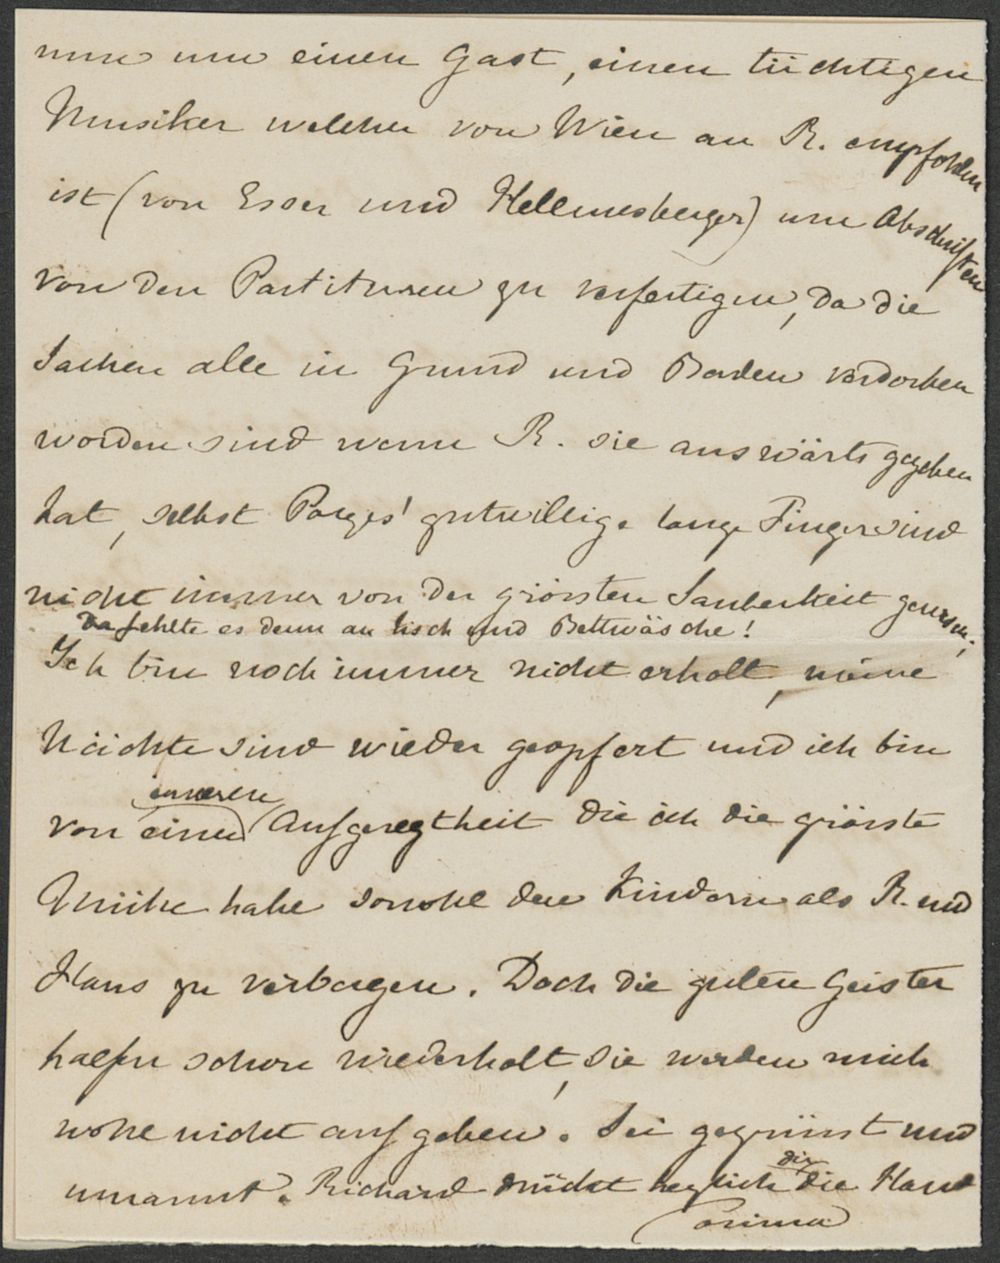 nun um einen Gast, einen tüchtigen
Musiker welcher von Wien an R. empfohlen
ist (von Esser und Hellmesberger) um Abschriften
von den Partituren zu verfertigen, da die
Sachen alle in Grund und Boden verdorben
worden sind wenn R. sie auswärts gegeben
hat, selbst Porges' gutwillige lange Finger sind
nicht immer von der grössten Sauberkeit gewesen;
da fehlte es denn an Tisch und Bettwäsche!
Ich bin noch immer nicht erholt, meine
Nächte sind wieder geopfert und ich bin
inneren
von einer Aufgeregtheit die ich die grösste
Mühe habe sowohl den Kindern als R. und
Hans zu verbergen. Doch die guten Geister
halfen schon wiederholt, sie werden mich
wohl nicht aufgeben. Sei gegrüsst und
umarmt. Richard drückt herzlich dir die Hand
Cosima